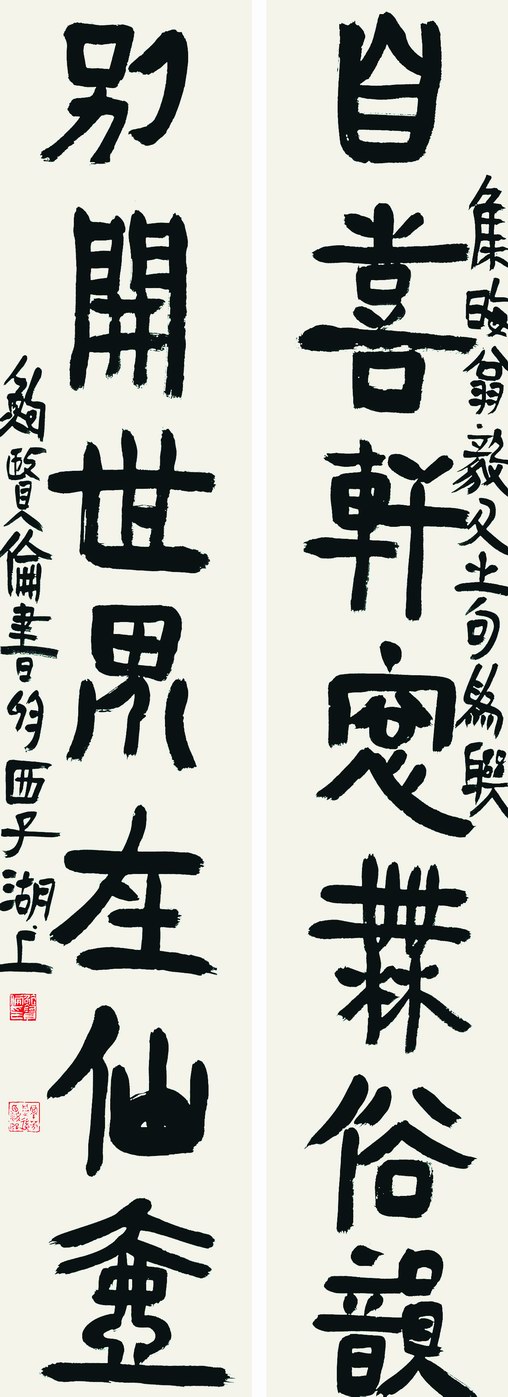 集晦翁毅父之句為聯
自喜軒窗無俗韻
別開世界在仙壺
鮑賢倫書於西子湖上